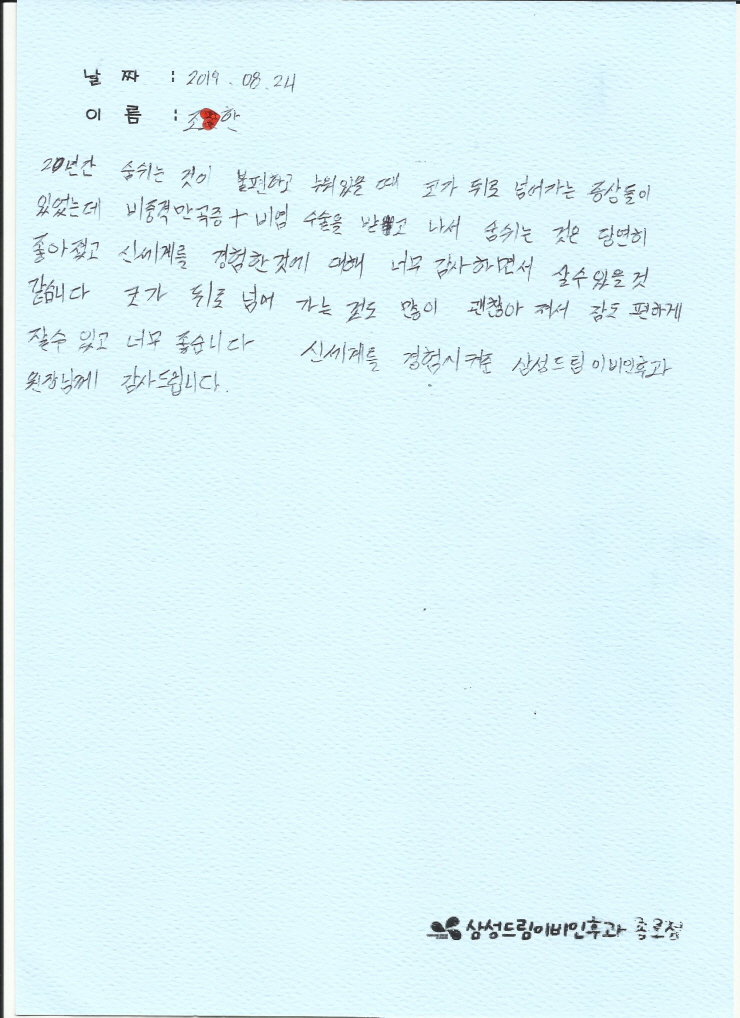 날 짜 : 2019. 08. 24
이 름 : 조 한
20년간 숨쉬는 것이 불편하고 누워있을 때 코가 뒤로 넘어가는 증상들이
있었는데 비중격만곡증 + 비염 수술을 받고 나서 숨쉬는 것은 당연히
좋아졌고 신세계를 경험한것에 대해 너무 감사하면서 살수있을것
같습니다 콧가 뒤로 넘어 가는 점도 많이 괜찮아 져서 잠도 편하게
잘수 있고 너무 좋습니다 신세계를 경험시켜준 삼성드림이비인후과
원장님께 감사드립니다.
삼성드림이비인후과 종로점